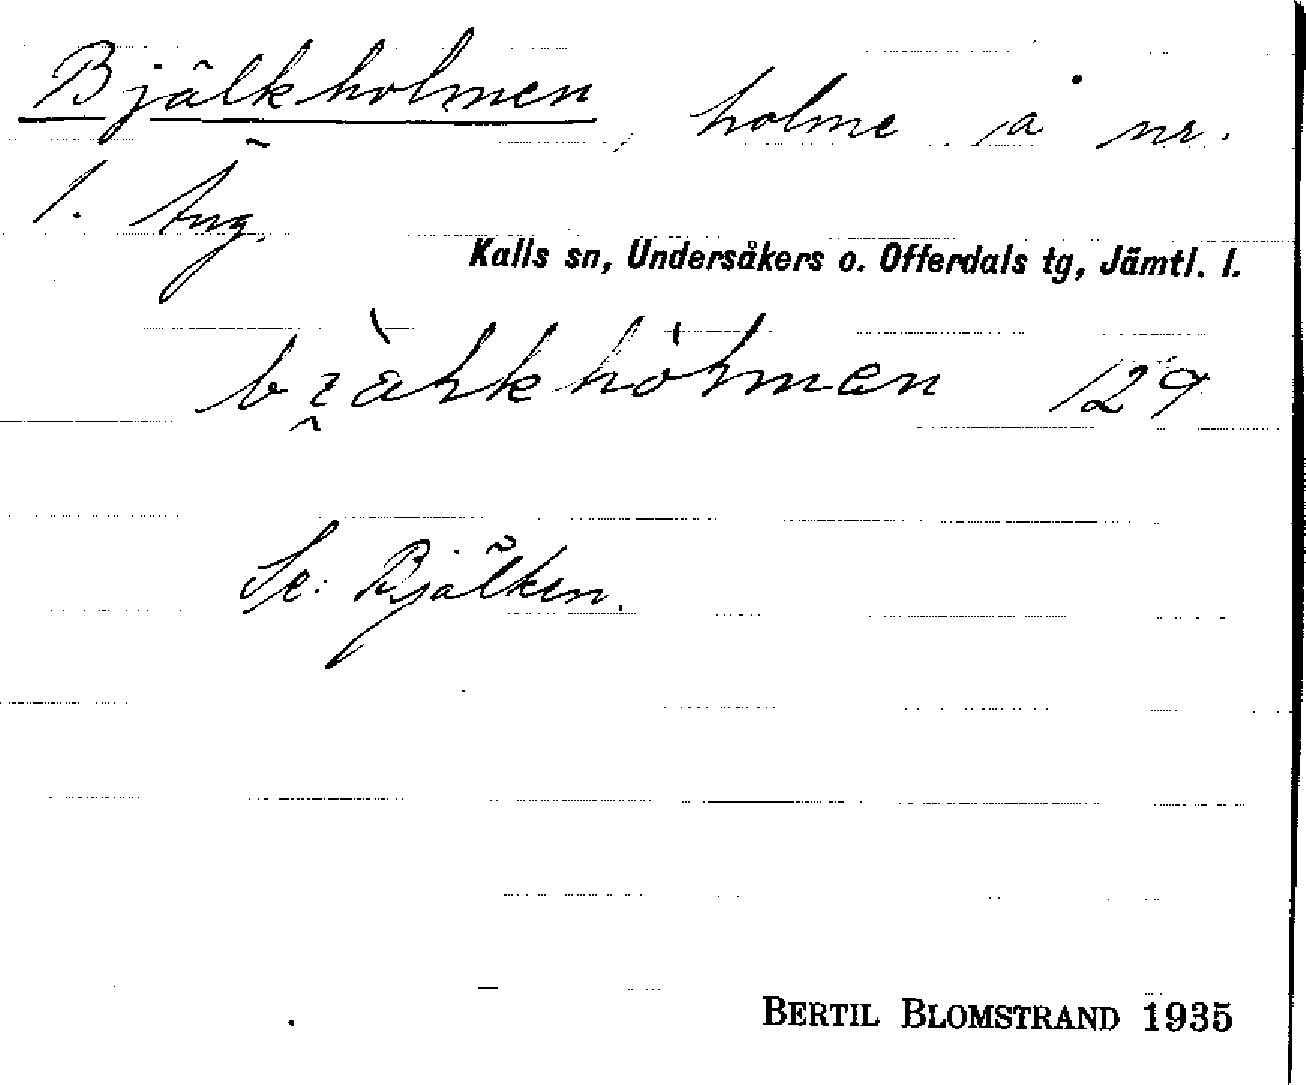 Bjälkholmen, holme å nr.
1. Äng.
Kalls sn, Undersåkers o. Offerdals tg, Jämtl. l.
129
Se: Bjälken.
BERTIL BLOMSTRAND 1935